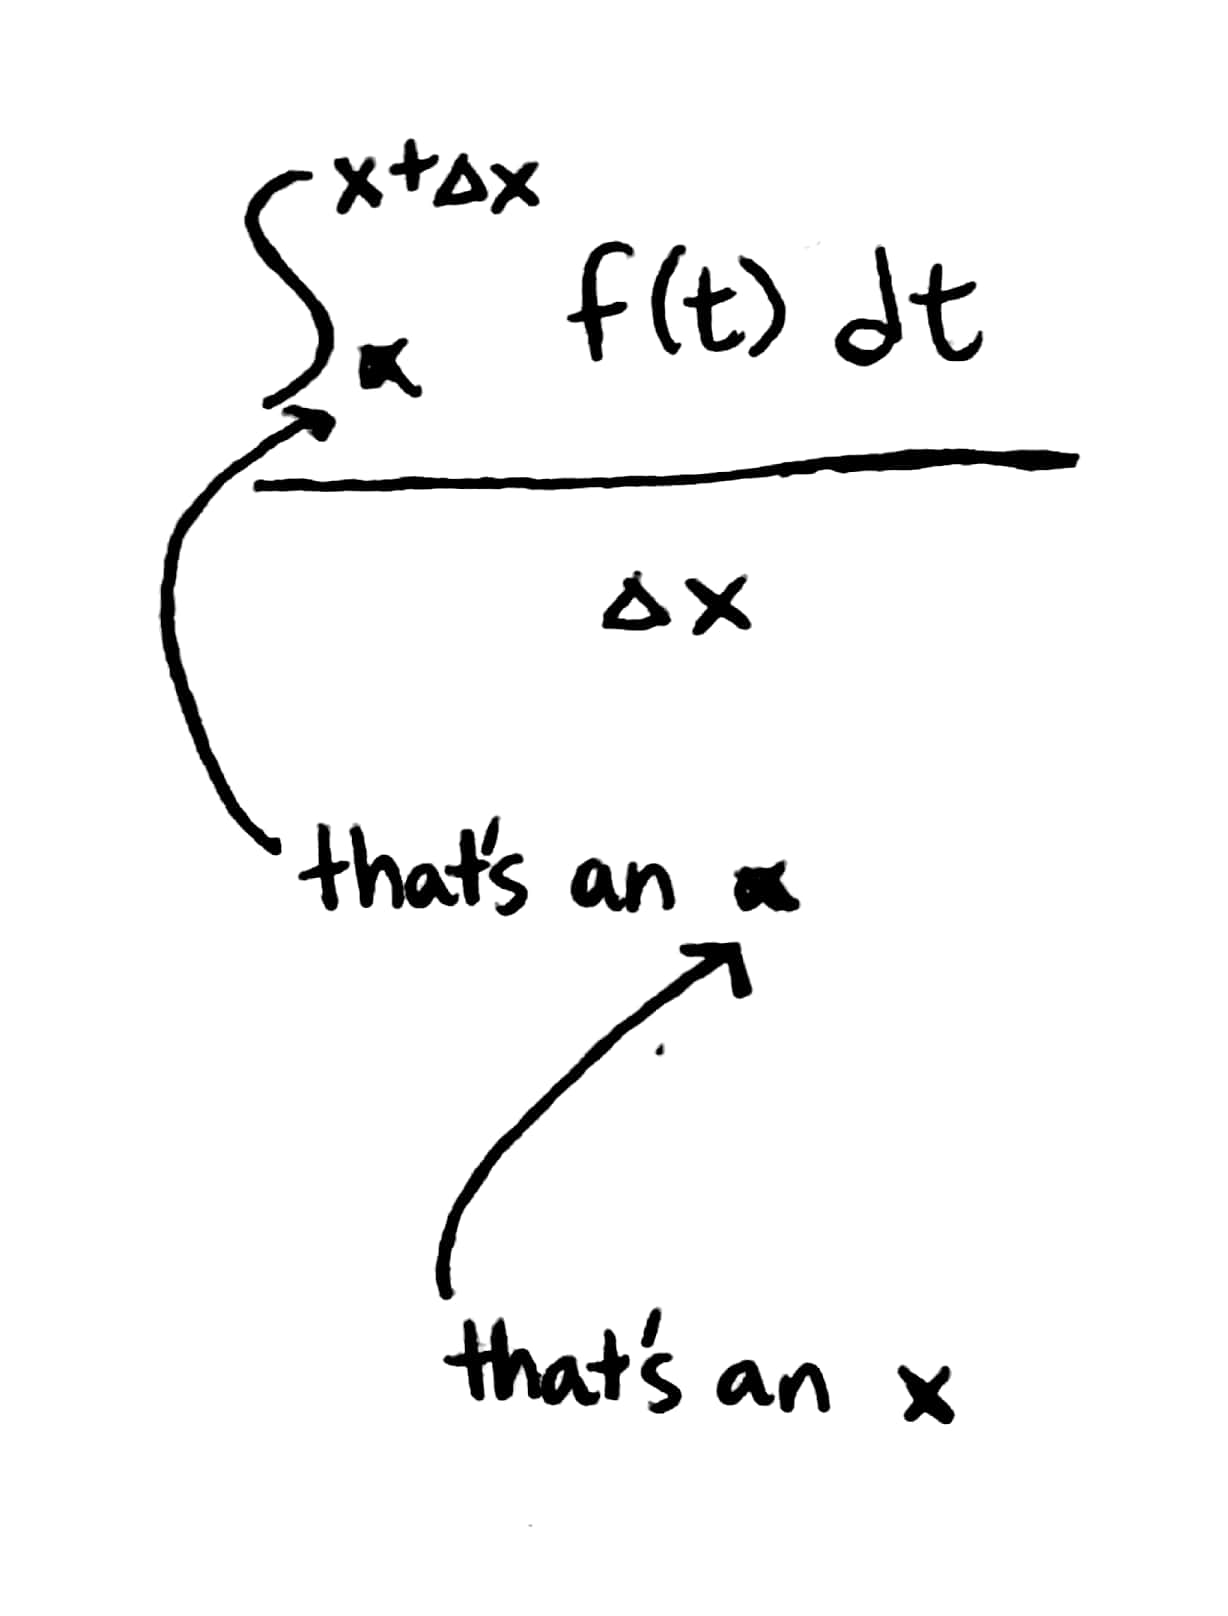 ∫ x+Δx
x f(t) dt
Δx
that's an x
that's an x